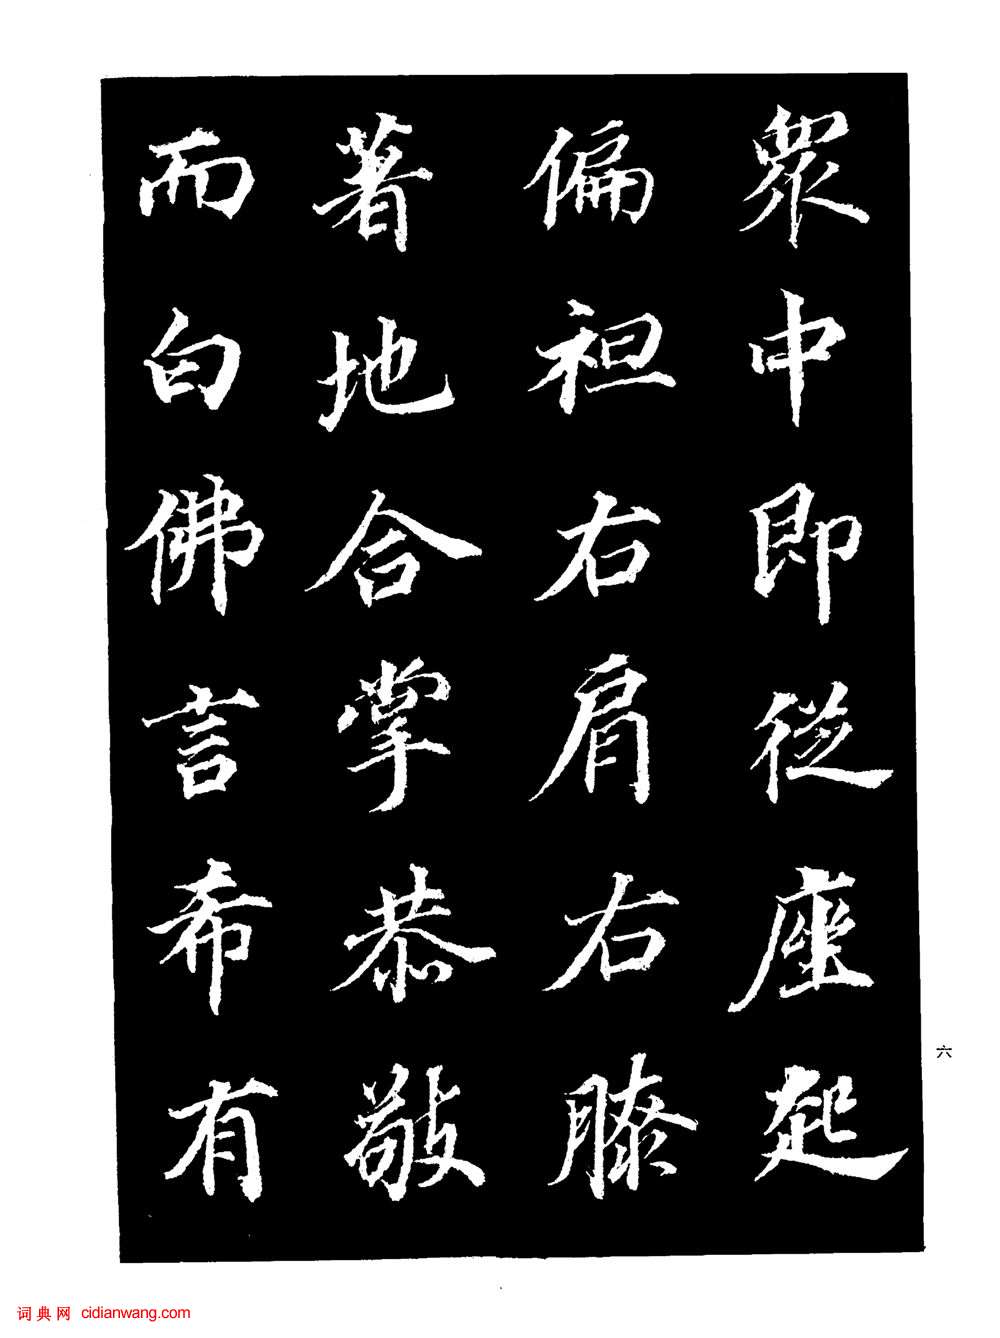 眾中即從座起
偏袒右肩右膝
著地合掌恭敬
而白佛言希有
六
词典网 cidianwang.com